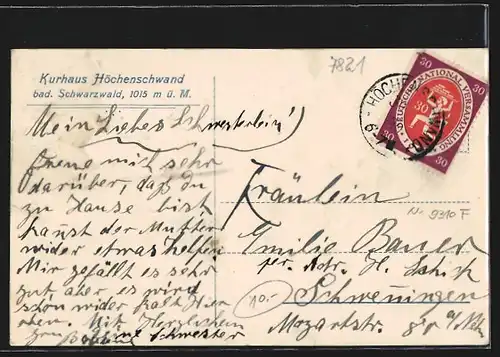 7821
Kurhaus Höchenschwand
bad. Schwarzwald, 1015 m ü. M.
30 30
DEUTSCHE NATIONALVERSAMMLUNG
30
30 30
HÖCHE
Mein Liebes Schwesterlein!
Freue mich sehr
darüber, daß du
zu Hause bist
kanst der Mutter
wider etwas helfen
Mir gefällt es sehr
gut aber es wird
schon wider kalt Hier
oben. Mit Herzlichem
Schwester
Fräulein
No 9310 F
Emilie Bauer
per. Adr. H.
Schwenningen
10.-
Mozartstr. a/Neckar